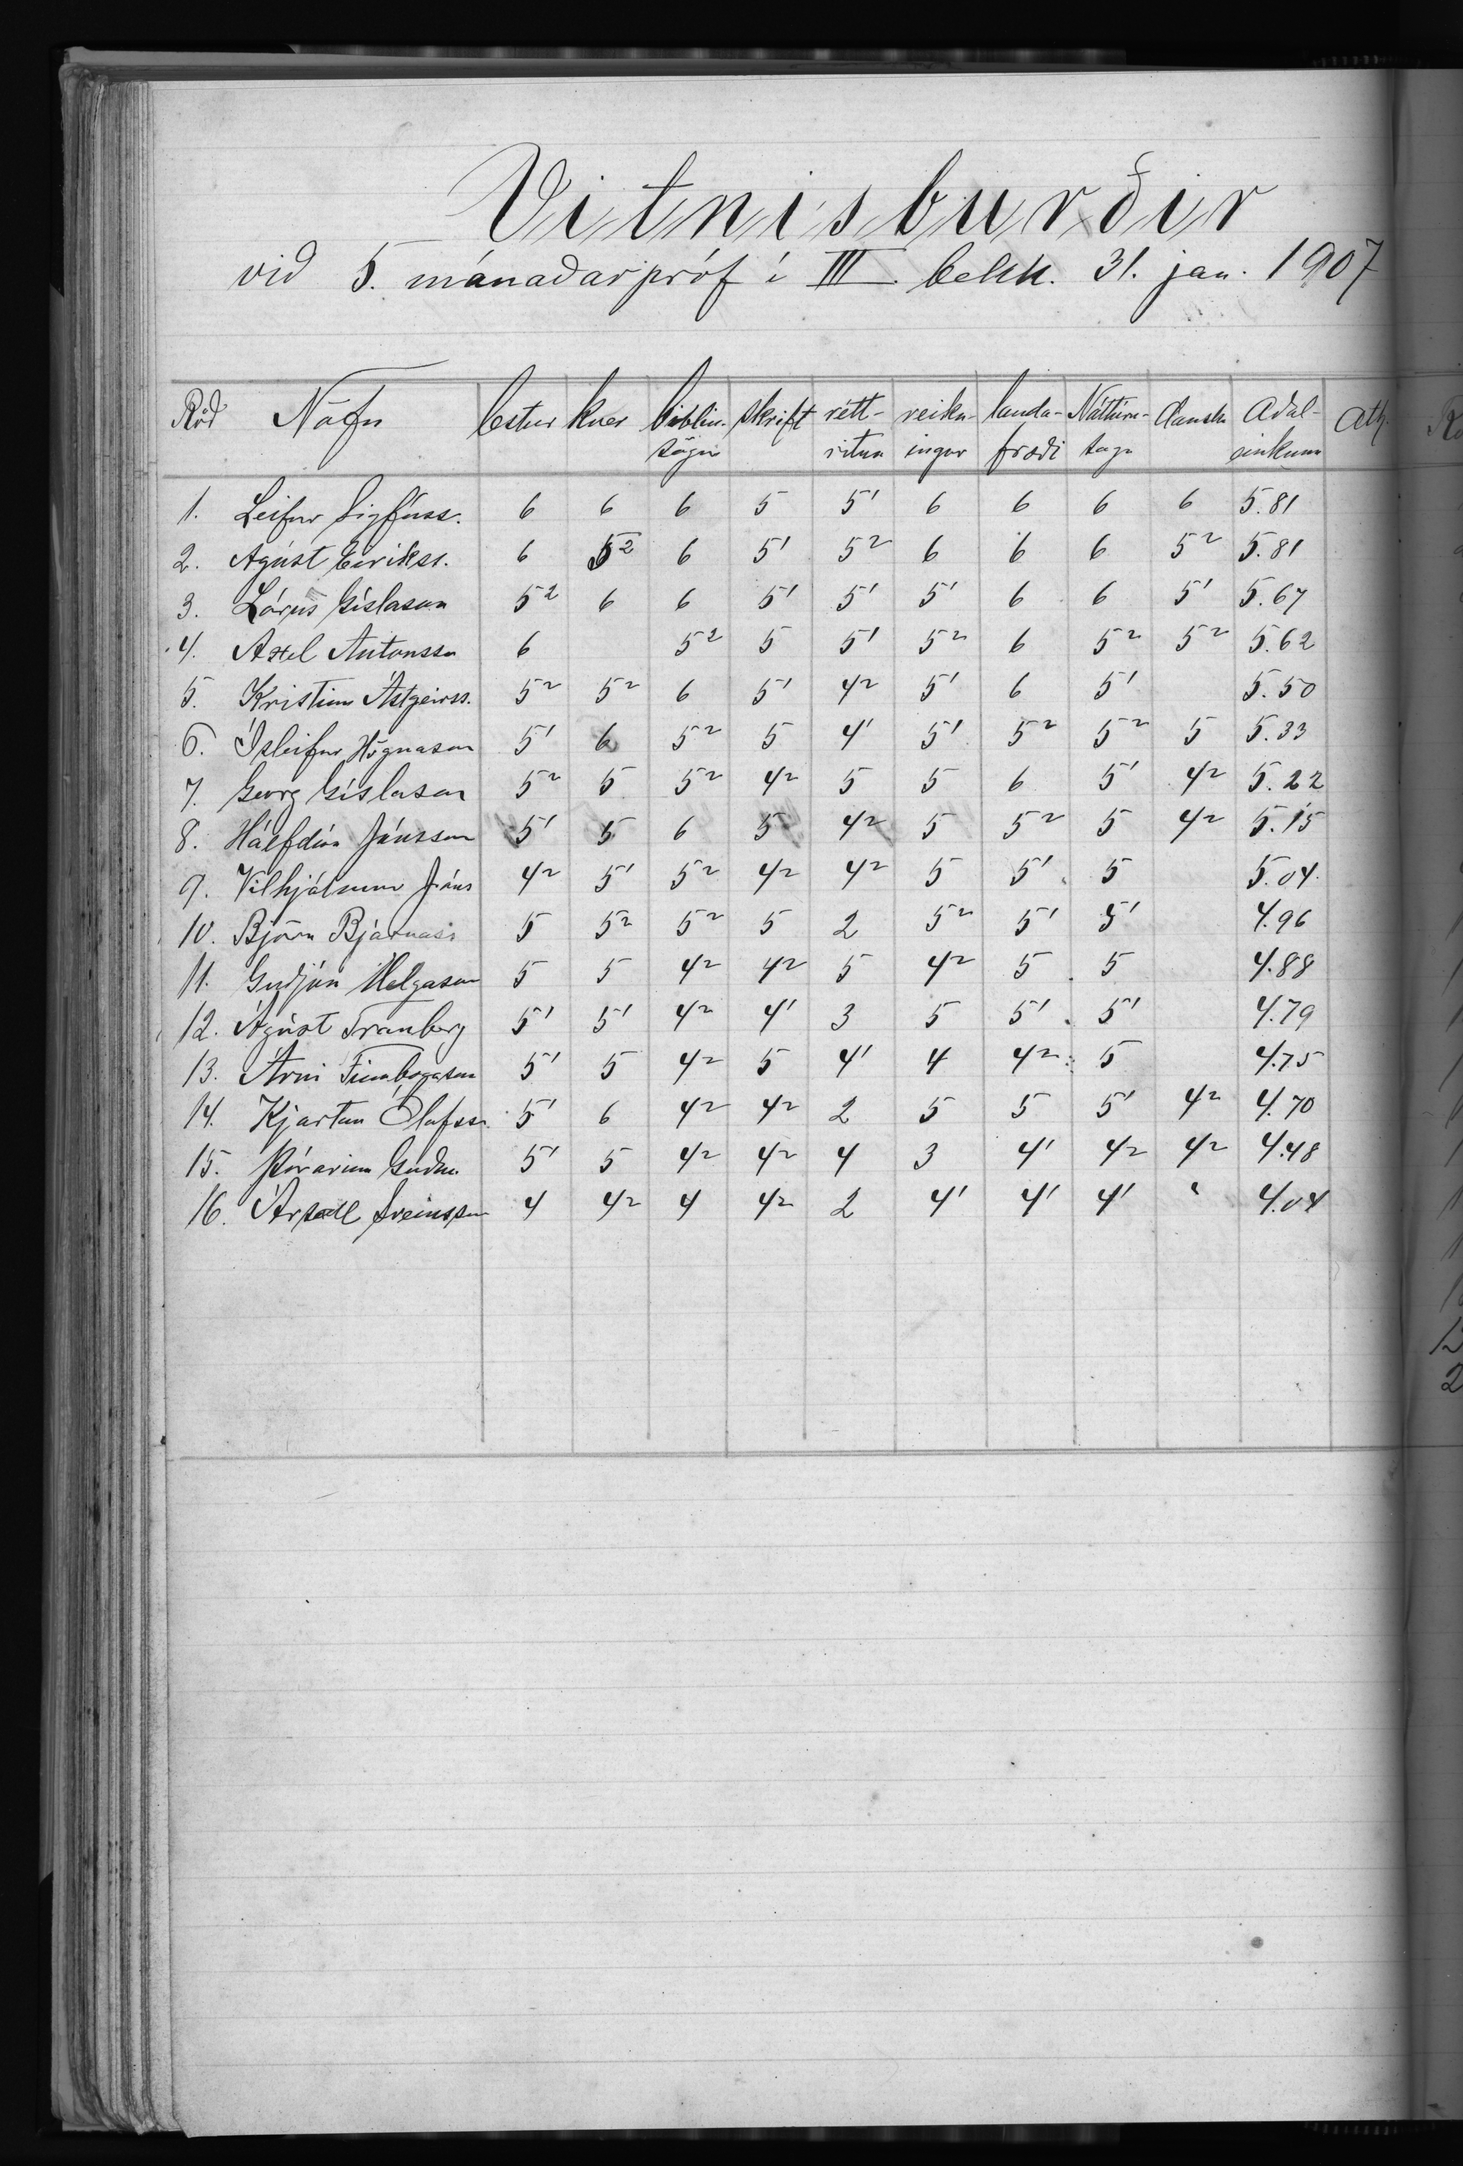 Vitnisburðir
við 5. mánaðarpróf í III. bekk. 31. jan. 1907
Röð Nöfn lestur kver biblíu- skrift rétt- reikn- landa- Náttúru- dansk Aðal- Ath.
sögur ritun ingur fræði saga einkunn
1. Leifur Sigfúss. 6 6 6 5 5¹ 6 6 6 6 5.81
2. Ágúst Eirikss. 6 5² 6 5¹ 5² 6 6 6 5² 5.81
3. Lárus Gíslason 5² 6 6 5¹ 5¹ 5¹ 6 6 5¹ 5.67
4. Axel Antonsson 6 5² 5 5¹ 5² 6 5² 5² 5.62
5. Kristinn Ástgeirss. 5² 5² 6 5¹ 4² 5¹ 6 5¹ 5.50
6. Ísleifur Högnason 5¹ 6 5² 5 4¹ 5¹ 5² 5² 5 5.33
7. Georg Gíslason 5² 5 5² 4² 5 5 6 5¹ 4² 5.22
8. Hálfdán Jónsson 5¹ 5 6 5 4² 5 5² 5 4² 5.15
9. Vilhjálmur Jóns 4² 5¹ 5² 4² 4² 5 5¹ 5 5.04
10. Björn Bjarnas 5 5² 5² 5 2 5² 5¹ 5¹ 4.96
11. Guðjón Helgason 5 5 4² 4² 5 4² 5 5 4.88
12. Ágúst Tranberg 5¹ 5¹ 4² 4¹ 3 5 5¹ 5¹ 4.79
13. Árni Finnbogason 5¹ 5 4² 5 4¹ 4 4² 5 4.75
14. Kjartan Ólafss. 5¹ 6 4² 4² 2 5 5 5¹ 4² 4.70
15. Þórarinn Guðm. 5¹ 5 4² 4² 4 3 4¹ 4² 4² 4.48
16. Ársæll Sveinsson 4 4² 4 4² 2 4¹ 4¹ 4¹ " 4.04